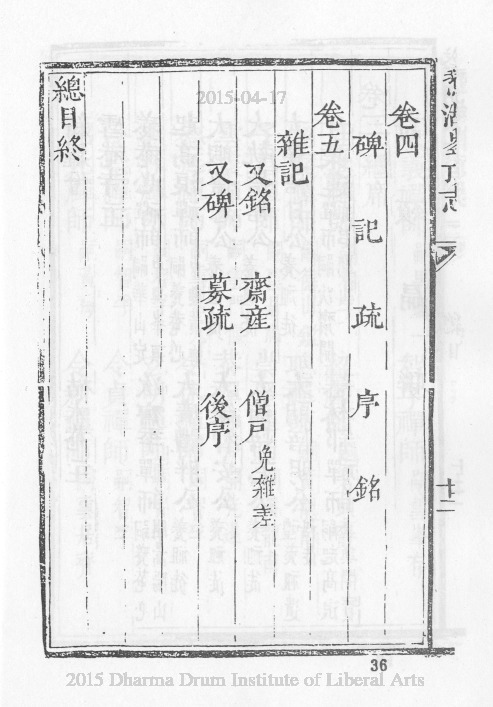 卷四
碑 記 疏 序 銘
卷五
雜記
又銘 齋產 僧戶 免雜差
又碑 募疏 後序
總目終
十二
36
2015-04-17
2015 Dharma Drum Institute of Liberal Arts